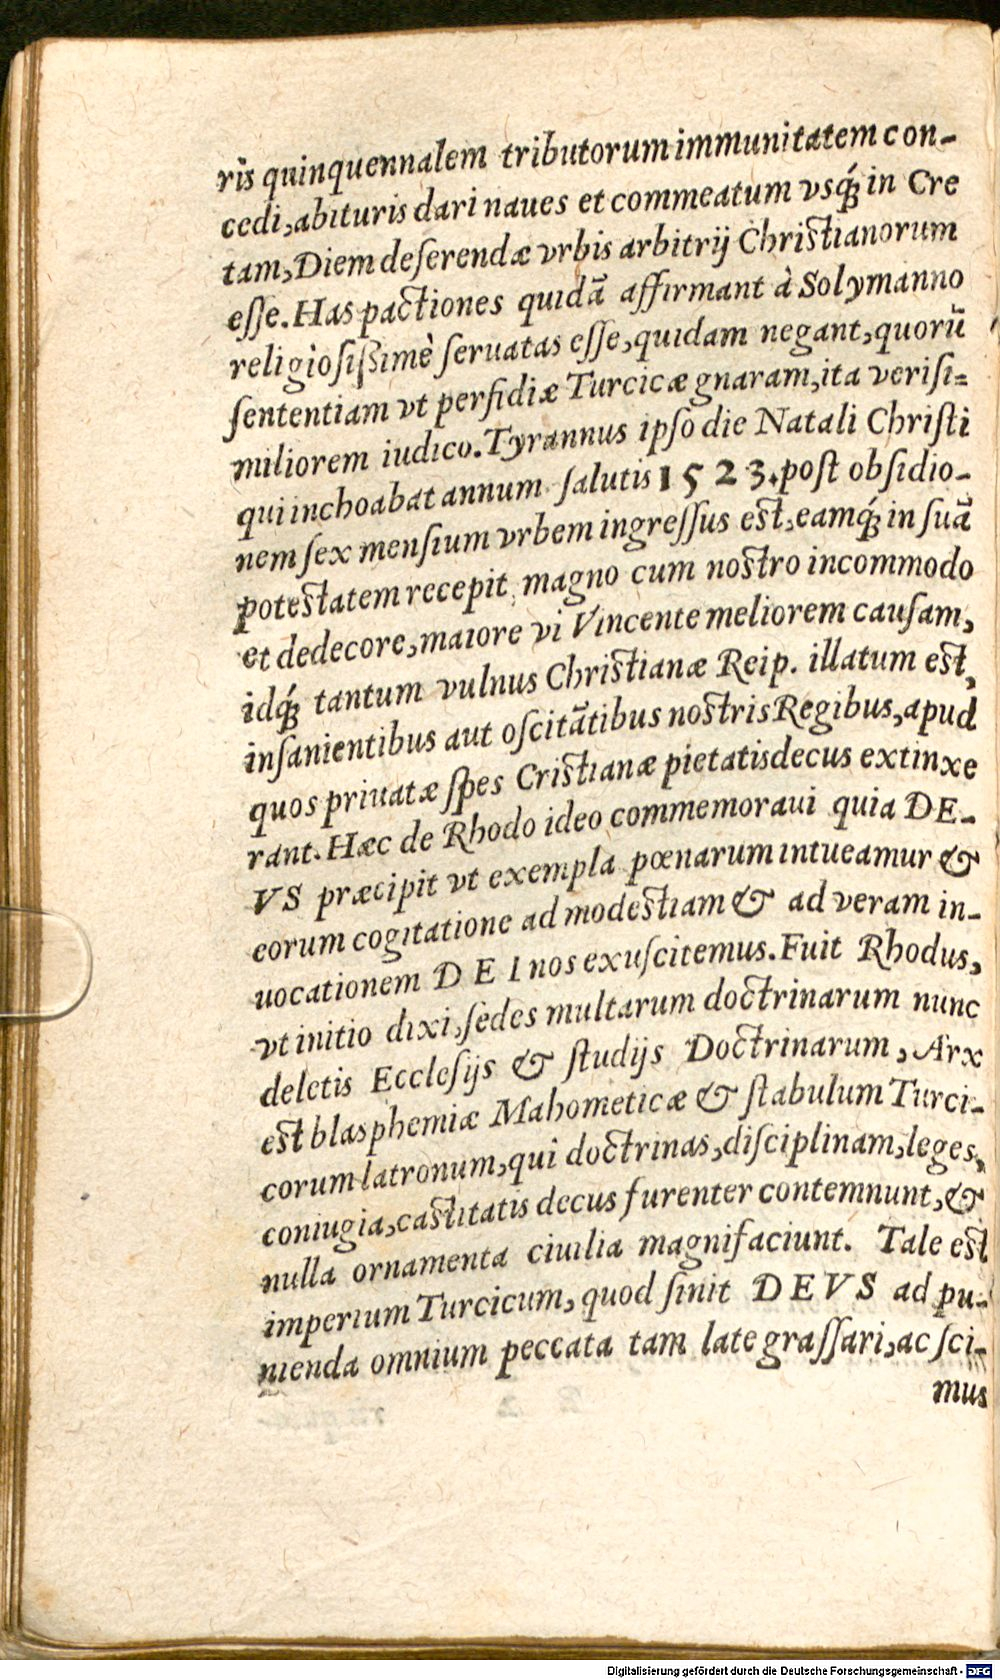 ris quinquennalem tributorum immunitatem con-
cedi, abituris dari naues et commeatum vsq́; in Cre
tam, Diem deſerendæ vrbis arbitrij Chriſtianorum
eſſe. Has pactiones quidã affirmant à Solymanno
religioſiſſimè ſeruatas eſſe, quidam negant, quorũ
ſententiam vt perfidiæ Turcicæ gnaram, ita veriſi=
miliorem iudico. Tyrannus ipſo die Natali Chriſti
qui inchoabat annum ſalutis 1523. poſt obſidio-
nem ſex menſium vrbem ingreſſus eſt, eamq́; in ſuã
poteſtatem recepit, magno cum noſtro incommodo
et dedecore, maiore vi Vincente meliorem cauſam,
idq́; tantum vulnus Chriſtianæ Reip. illatum eſt,
inſanientibus aut oſcitãtibus noſtris Regibus, apud
quos priuatæ ſpes Criſtianæ pietatis decus extinxe
rant. Hæc de Rhodo ideo commemoraui quia DE-
VS præcipit vt exempla pœnarum intueamur &
eorum cogitatione ad modeſtiam & ad veram in-
uocationem DEI nos exuſcitemus. Fuit Rhodus,
vt initio dixi, ſedes multarum doctrinarum nunc
deletis Eccleſijs & ſtudijs Doctrinarum, Arx
eſt blasphemiæ Mahometicæ & ſtabulum Turci-
corum latronum, qui doctrinas, diſciplinam, leges,
coniugia, caſtitatis decus furenter contemnunt, &
nulla ornamenta ciuilia magnifaciunt. Tale eſt
imperium Turcicum, quod ſinit DEVS ad pu-
nienda omnium peccata tam late graſſari, ac ſci-
mus
Digitalisierung gefördert durch die Deutsche Forschungsgemeinschaft - DFG